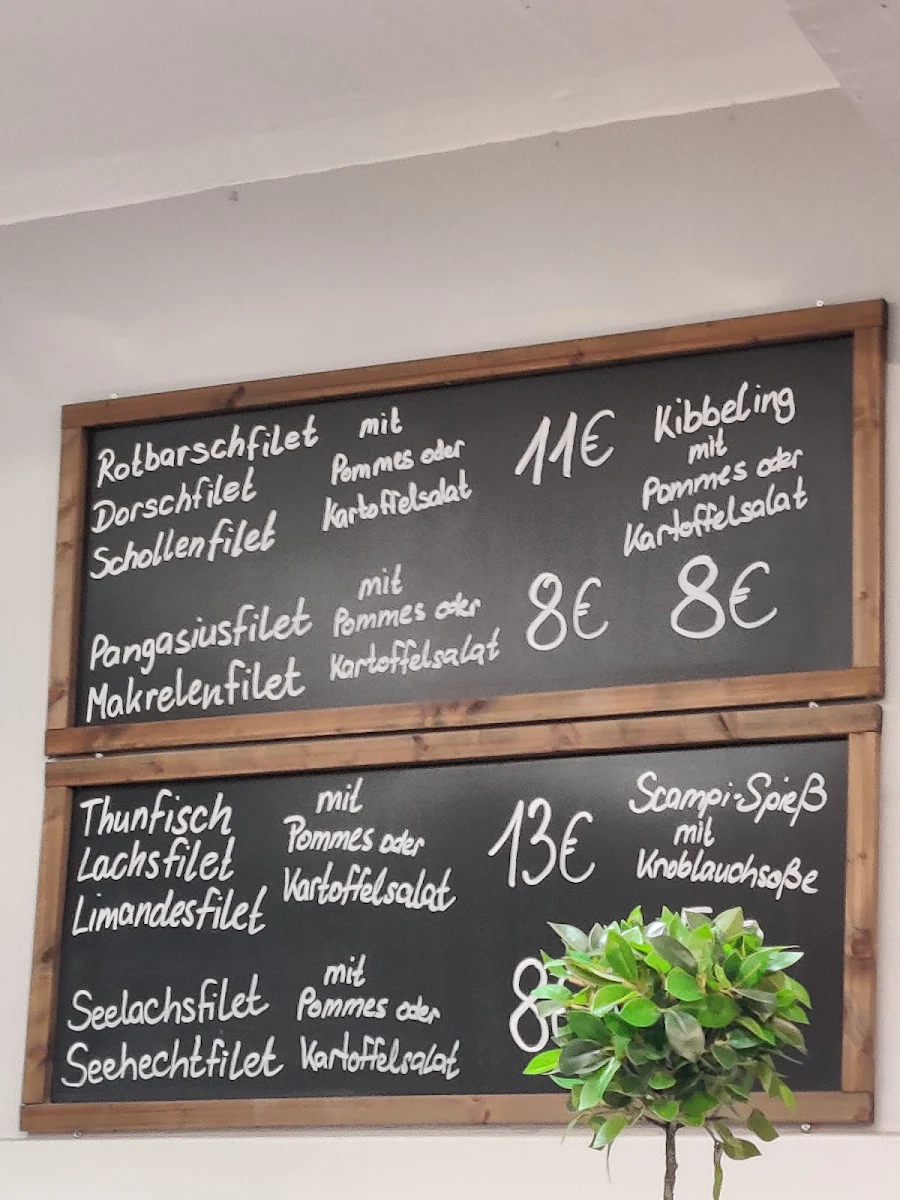 Rotbarschfilet
Dorschfilet
Schollenfilet
mit
Pommes oder
Kartoffelsalat
11€
Pangasiusfilet
Makrelenfilet
mit
Pommes oder
Kartoffelsalat
8€
Kibbeling
mit
Pommes oder
Kartoffelsalat
8€
Thunfisch
Lachsfilet
Limandesfilet
mit
Pommes oder
Kartoffelsalat
13€
Scampi-Spieß
mit
Knoblauchsoße
Seelachsfilet
Seehechtfilet
mit
Pommes oder
Kartoffelsalat
8€